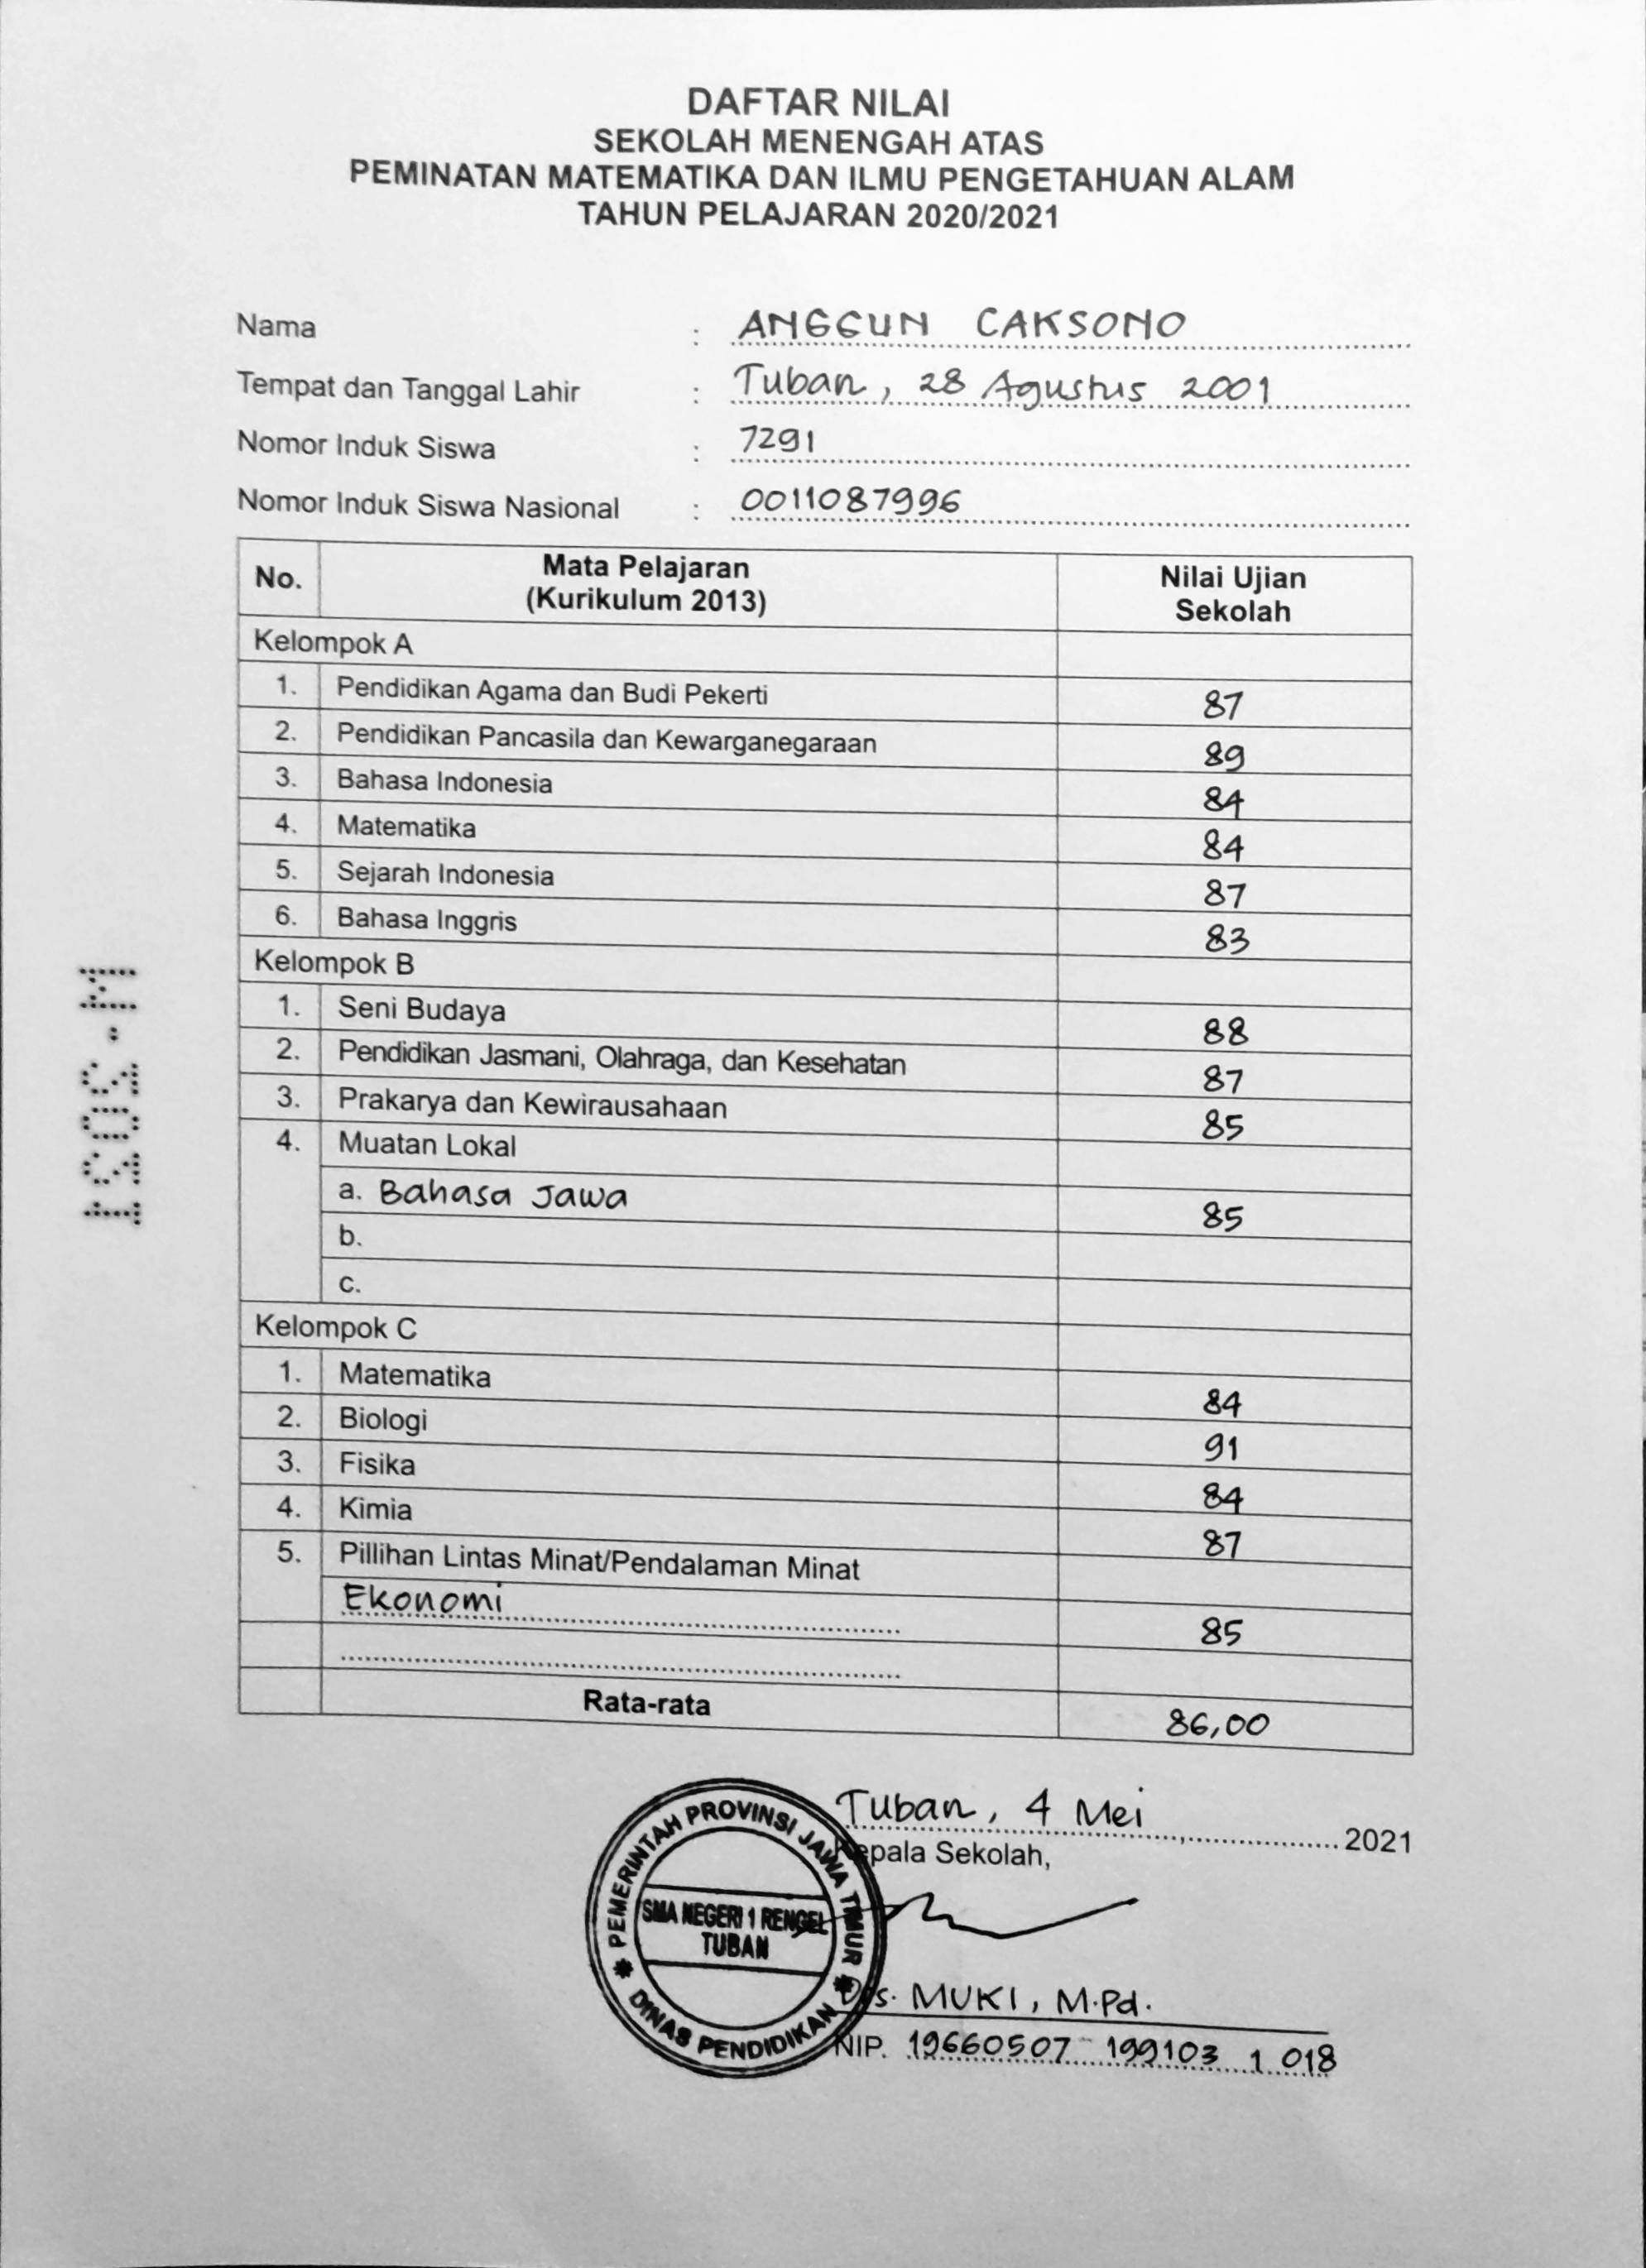 DAFTAR NILAI
SEKOLAH MENENGAH ATAS
PEMINATAN MATEMATIKA DAN ILMU PENGETAHUAN ALAM
TAHUN PELAJARAN 2020/2021
Nama : ANGGUN CAKSONO
Tempat dan Tanggal Lahir : Tuban, 28 Agustus 2001
Nomor Induk Siswa : 7291
Nomor Induk Siswa Nasional : 0011087996
No. Mata Pelajaran (Kurikulum 2013) Nilai Ujian Sekolah
Kelompok A
1. Pendidikan Agama dan Budi Pekerti 87
2. Pendidikan Pancasila dan Kewarganegaraan 89
3. Bahasa Indonesia 84
4. Matematika 84
5. Sejarah Indonesia 87
6. Bahasa Inggris 83
Kelompok B
1. Seni Budaya 88
2. Pendidikan Jasmani, Olahraga, dan Kesehatan 87
3. Prakarya dan Kewirausahaan 85
4. Muatan Lokal
a. Bahasa Jawa 85
b.
c.
Kelompok C
1. Matematika 84
2. Biologi 91
3. Fisika 84
4. Kimia 87
5. Pillihan Lintas Minat/Pendalaman Minat
Ekonomi 85
Rata-rata 86,00
Tuban, 4 Mei, 2021
Kepala Sekolah,
PEMERINTAH PROVINSI JAWA TIMUR
SMA NEGERI 1 RENGEL
TUBAN
DINAS PENDIDIKAN
Drs. MUKI, M.Pd.
NIP. 19660507 199103 1 018